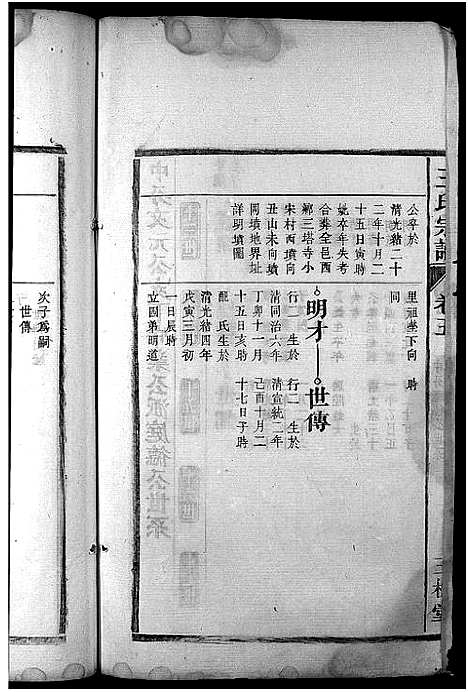 王氏宗譜
卷五
三槐堂
公卒於
清光緒二十
二年十月二
十五日寅時
妣卒年失考
合葬全邑西
鄉三塔寺小
宋村西墳向
丑山未向墳
同墳地界址
詳明墳圖
里祖塋下向
時
同
明才
世傳
行二
生於
清同治六年
丁卯十一月
十五日亥時
龍氏生於
清光緒四年
戊寅三月初
一日辰時
立圀弟明道
行二
生於
清宣統二年
己酉十月二
十七日子時
次子爲嗣
世傳